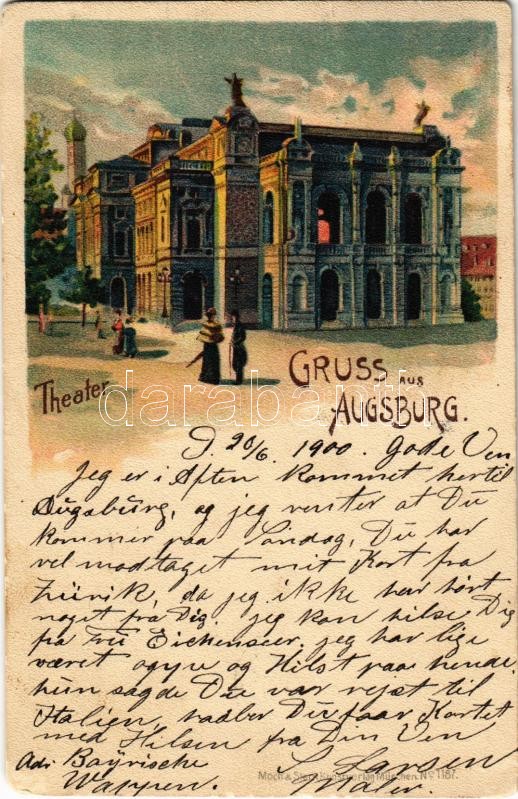 Theater
GRUSS AUS
AUGSBURG.
D. 20/6. 1900. Gode Ven
Jeg er i Aften kommet hertil
Augsburg, og jeg venter at Du
kommer paa Søndag, Du har
vel modtaget mit Kort fra
Zürik, da jeg ikke har hørt
noget fra Dig. jeg kan hilse Dig
fra Frü Eichenseer, jeg har lige
været og Hilst paa hende.
hun sagde Du var rejst til
Italien, haaber Du faar Kortet
med Hilsen fra Din Ven
Adr. Bayrische L. Larsen
Wappen. Maler.
Moch & Stern Kunstverlag München. No 1187.
darabanth.com